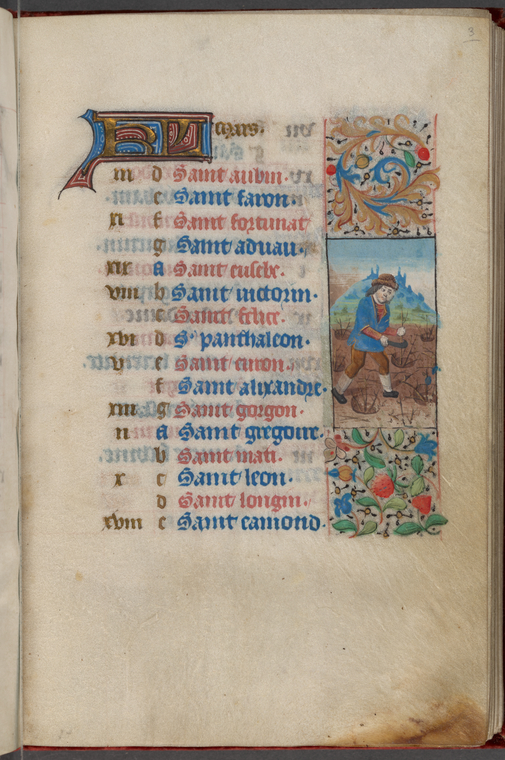 3
KL mars.
iii d Saint aubin.
e Saint faron.
xi f Saint fortunat
g Saint aduau.
xix A Saint eusebe.
viii b Saint uictorin.
c Sainct felice.
xvi d S. panthaleon.
v e Saint
f Saint alixandre.
xiii g Saint gorgon.
ii A Saint gregoire.
b Saint mati.
x c Saint leon.
d Saint longin.
xviii e Saint